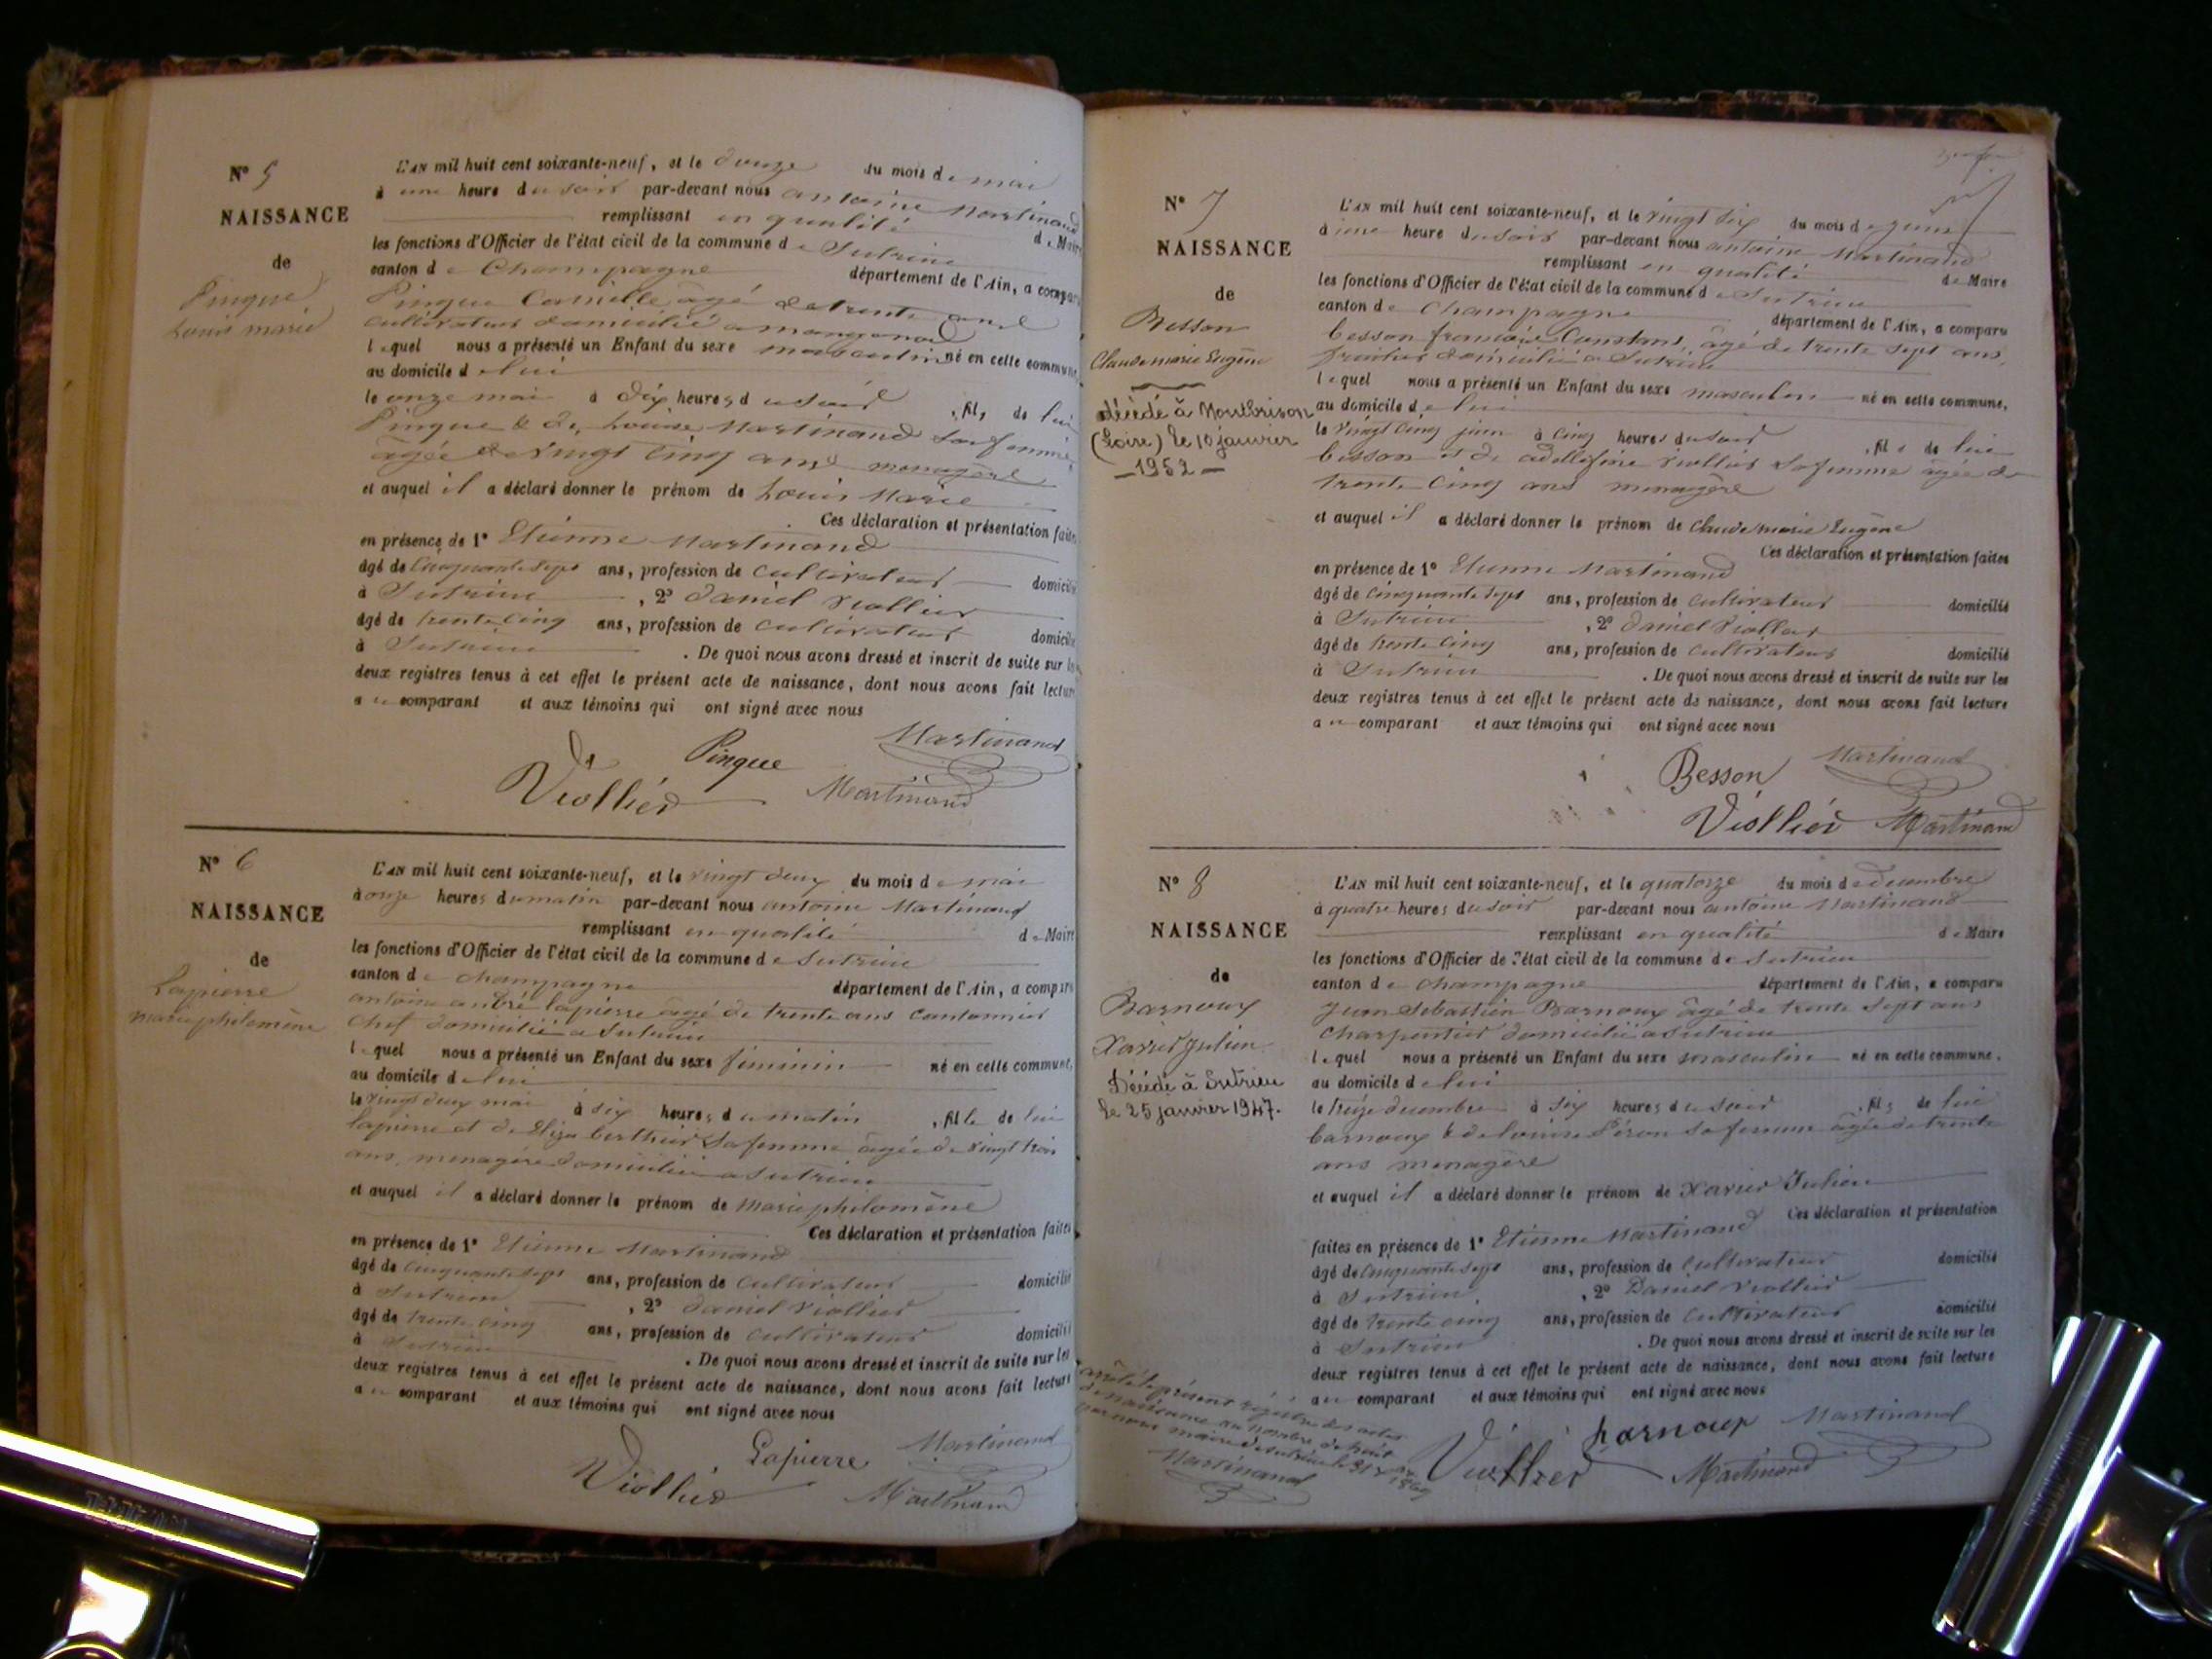 N° 5
NAISSANCE
de
Pingue
Louis marie
L'AN mil huit cent soixante-neuf, et le douze du mois de mai
à une heure du soir par-devant nous antoine Martinand
remplissant en qualité de Maire
les fonctions d'Officier de l'état civil de la commune de Sutrieu
canton de Champagne département de l'Ain, a comparu
Pingue Camille âgé de trente ans
cultivateur domicilié a
lequel nous a présenté un Enfant du sexe masculin né en cette commune,
au domicile de lui
le onze mai à dix heures du soir, fils de lui
Pingue & de Louise Martinand sa femme
âgée de vingt cinq ans menagère
et auquel il a déclaré donner le prénom de Louis Marie
Ces déclaration et présentation faites
en présence de 1° Etienne Martinand
âgé de cinquante sept ans, profession de cultivateur domicilié
à Sutrieu, 2° Daniel Viollier
âgé de trente cinq ans, profession de cultivateur domicilié
à Sutrieu. De quoi nous avons dressé et inscrit de suite sur les
deux registres tenus à cet effet le présent acte de naissance, dont nous avons fait lecture
au comparant et aux témoins qui ont signé avec nous
Martinand
Pingue
Viollier Martinand
N° 6
NAISSANCE
de
Lapierre
marie philomène
L'AN mil huit cent soixante-neuf, et le vingt deux du mois de mai
à onze heures du matin par-devant nous antoine Martinand
remplissant en qualité de Maire
les fonctions d'Officier de l'état civil de la commune de Sutrieu
canton de champagne département de l'Ain, a comparu
antoine andré lapierre âgé de trente ans cantonnier
chef domicilié a Sutrieu
lequel nous a présenté un Enfant du sexe féminin né en cette commune,
au domicile de lui
le vingt deux mai à six heures du matin, fille de lui
lapierre et de Eliza berthier sa femme âgée de vingt trois
ans, menagère domiciliée a Sutrieu
et auquel il a déclaré donner le prénom de Marie philomène
Ces déclaration et présentation faites
en présence de 1° Etienne Martinand
âgé de cinquante sept ans, profession de cultivateur domicilié
à Sutrieu, 2° Daniel Viollier
âgé de trente cinq ans, profession de cultivateur domicilié
à Sutrieu. De quoi nous avons dressé et inscrit de suite sur les
deux registres tenus à cet effet le présent acte de naissance, dont nous avons fait lecture
au comparant et aux témoins qui ont signé avec nous
Lapierre Martinand
Viollier Martinand
N° 7
NAISSANCE
de
Besson
Claude marie Eugène
décédé à Montbrison
(Loire) le 10 janvier
-1952-
L'AN mil huit cent soixante-neuf, et le vingt six du mois de juin
à une heure du soir par-devant nous antoine Martinand
remplissant en qualité de Maire
les fonctions d'Officier de l'état civil de la commune de Sutrieu
canton de Champagne département de l'Ain, a comparu
besson françois Constans, âgé de trente sept ans,
domicilié a Sutrieu
lequel nous a présenté un Enfant du sexe masculin né en cette commune,
au domicile de lui
le vingt cinq juin à cinq heures du soir, fils de lui
besson et de viollier sa femme âgée de
trente cinq ans menagère
et auquel il a déclaré donner le prénom de Claude marie Eugène
Ces déclaration et présentation faites
en présence de 1° Etienne Martinand
âgé de cinquante sept ans, profession de cultivateur domicilié
à Sutrieu, 2° Daniel Viollier
âgé de trente cinq ans, profession de cultivateur domicilié
à Sutrieu. De quoi nous avons dressé et inscrit de suite sur les
deux registres tenus à cet effet le présent acte de naissance, dont nous avons fait lecture
au comparant et aux témoins qui ont signé avec nous
Besson Martinand
Viollier Martinand
N° 8
NAISSANCE
de
Barnoux
Xavier Julien
Décédé à Sutrieu
le 25 janvier 1947.
L'AN mil huit cent soixante-neuf, et le quatorze du mois de décembre
à quatre heures du soir par-devant nous antoine Martinand
remplissant en qualité de Maire
les fonctions d'Officier de l'état civil de la commune de Sutrieu
canton de champagne département de l'Ain, a comparu
Jean Sebastien Barnoux âgé de trente sept ans
charpentier domicilié a Sutrieu
lequel nous a présenté un Enfant du sexe masculin né en cette commune,
au domicile de lui
le treize decembre à six heures du soir, fils de lui
barnoux & de louise sa femme âgée de trente
ans menagère
et auquel il a déclaré donner le prénom de Xavier Julien
Ces déclaration et présentation
faites en présence de 1° Etienne Martinand
âgé de cinquante sept ans, profession de cultivateur domicilié
à Sutrieu, 2° Daniel Viollier
âgé de trente cinq ans, profession de cultivateur domicilié
à Sutrieu. De quoi nous avons dressé et inscrit de suite sur les
deux registres tenus à cet effet le présent acte de naissance, dont nous avons fait lecture
au comparant et aux témoins qui ont signé avec nous
barnoux Martinand
Viollier Martinand
arrêté le présent régistre des actes
de naissance au nombre de huit
par nous maire de Sutrieu le 31 Xbre 1869
Martinand